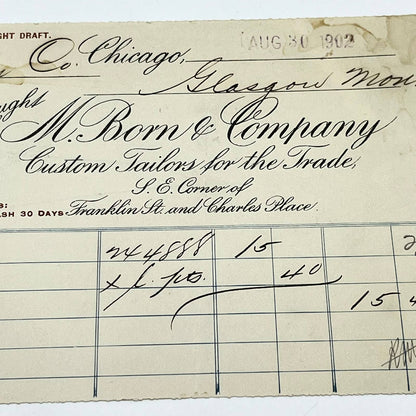 GHT DRAFT.
Co. Chicago, AUG 30 1902
Glasgow Mon
ught
M. Born & Company
Custom Tailors for the Trade,
S. E. Corner of
Franklin St. and Charles Place.
S:
ASH 30 DAYS
244888 15 2
x f. pts. 40
15 4